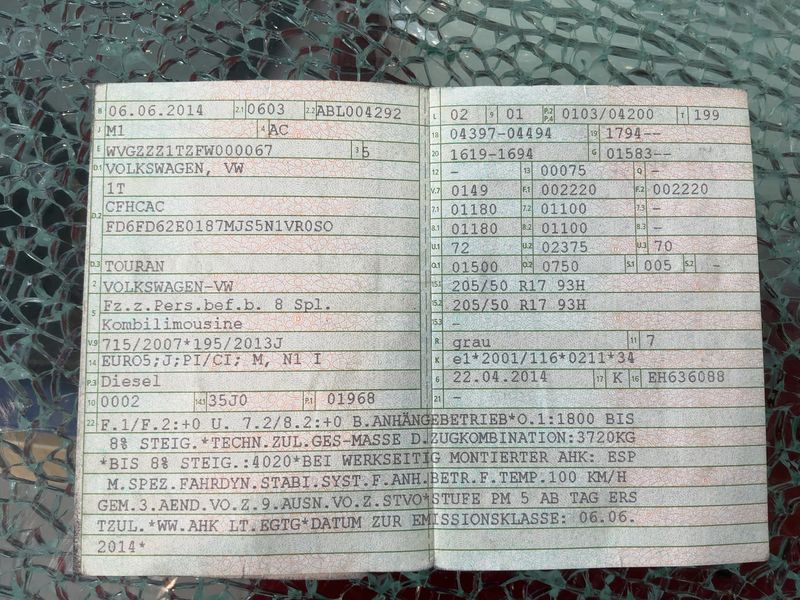 B 06.06.2014 2.1 0603 2.2 ABL004292
J M1 4 AC
E WVGZZZ1TZFW000067 3 5
D.1 VOLKSWAGEN, VW
1T
D.2 CFHCAC
FD6FD62E0187MJS5N1VR0SO
D.3 TOURAN
2 VOLKSWAGEN-VW
5 Fz.z.Pers.bef.b. 8 Spl.
Kombilimousine
V.9 715/2007*195/2013J
14 EURO5;J;PI/CI; M, N1 I
P.3 Diesel
10 0002 14.1 35J0 P.1 01968
L 02 9 01 P.2 P.4 0103/04200 T 199
18 04397-04494 19 1794--
20 1619-1694 G 01583--
12 - 13 00075 Q -
V.7 0149 F.1 002220 F.2 002220
7.1 01180 7.2 01100 7.3 -
8.1 01180 8.2 01100 8.3 -
U.1 72 U.2 02375 U.3 70
O.1 01500 O.2 0750 S.1 005 S.2 -
15.1 205/50 R17 93H
15.2 205/50 R17 93H
15.3 -
R grau 11 7
K e1*2001/116*0211*34
6 22.04.2014 17 K 16 EH636088
21 -
22 F.1/F.2:+0 U. 7.2/8.2:+0 B.ANHÄNGEBETRIEB*O.1:1800 BIS
8% STEIG.*TECHN.ZUL.GES-MASSE D.ZUGKOMBINATION:3720KG
*BIS 8% STEIG.:4020*BEI WERKSEITIG MONTIERTER AHK: ESP
M.SPEZ.FAHRDYN.STABI.SYST.F.ANH.BETR.F.TEMP.100 KM/H
GEM.3.AEND.VO.Z.9.AUSN.VO.Z.STVO*STUFE PM 5 AB TAG ERS
TZUL.*WW.AHK LT.EGTG*DATUM ZUR EMISSIONSKLASSE: 06.06.
2014*